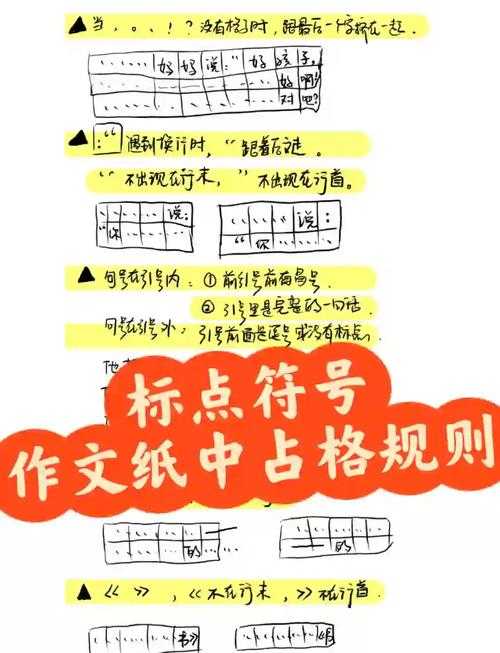 ▲ 当，。、！？没有格子时，跟最后一字挤在一起.
好好说："好孩子。
好啊!
对吧?
▲ :" 遇到换行时，"跟着后进。
"不出现在行末，"不出现在行首。
说:
"你
说:
"你
▲ 句号在引号内：① 前引号前有冒号.
② 引号里是完整的一句话.
句号在引号外：引号前面是逗号或没有标点.
他
标点符号
作文纸中占格规则
的
的
▲ 《 》，《不在行末，》不在行首.
书》
《书